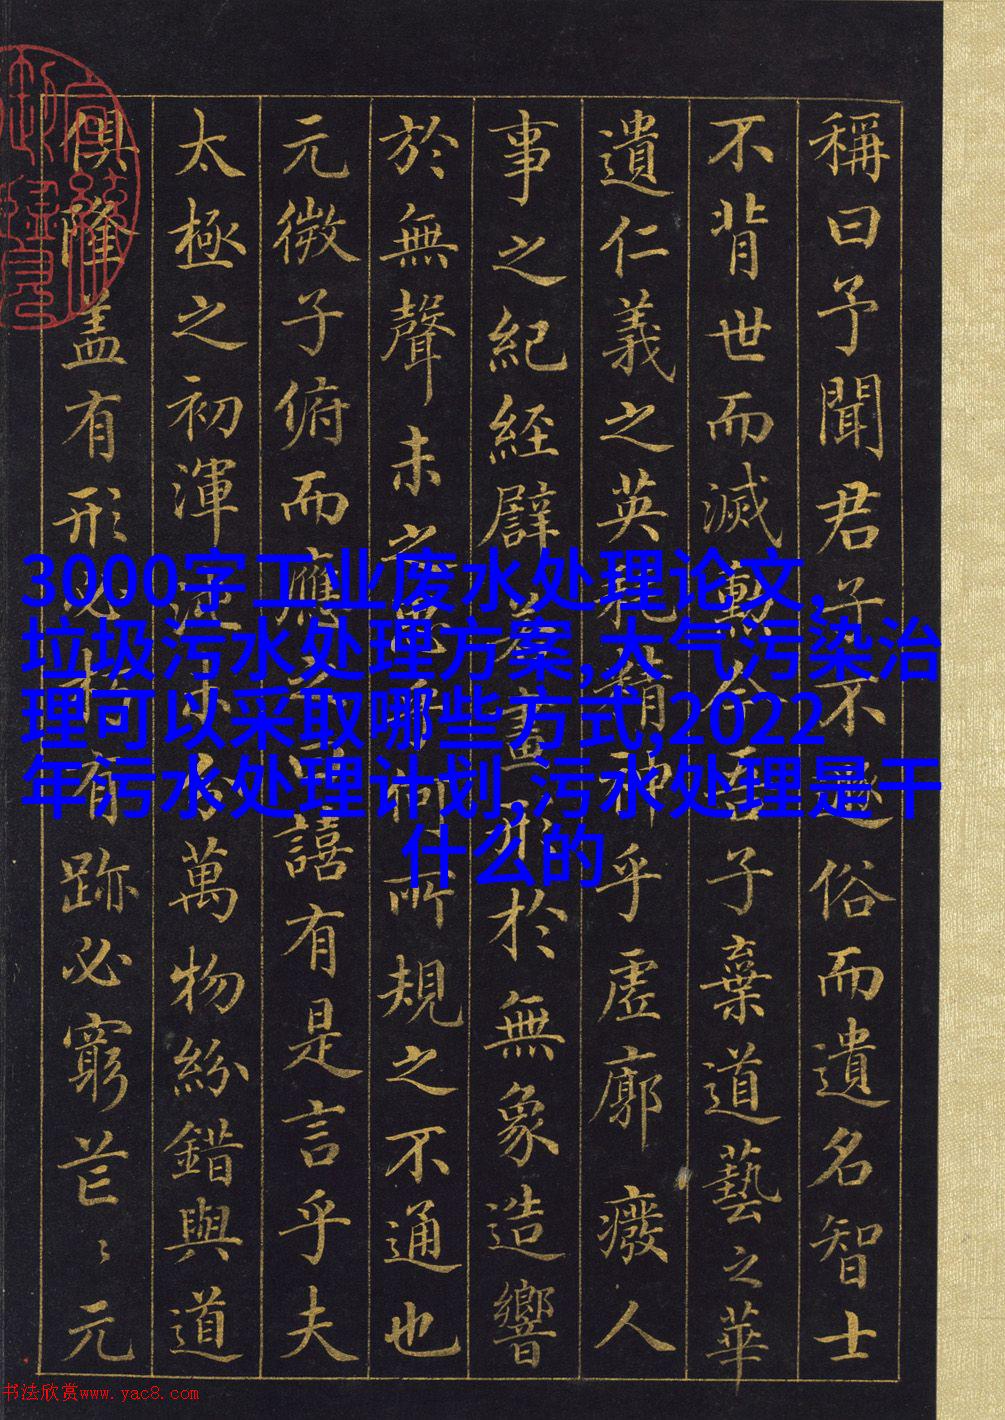 稱曰予聞君子不遯俗而遺名智士
不背世而滅勳今吾子棄道藝之華
遺仁義之英耗精神乎虛廓癈人
事之紀經譬若畫形於無象造響
於無聲未之思乎何所規之不通也
元微子俯而應之曰譆有是言乎夫
太極之初渾沌未分萬物紛錯與道
俱隆盖有形必朽有跡必窮芒〻元
3000字工业废水处理论文,
垃圾污水处理方案,大气污染治
理可以采取哪些方式,2022
年污水处理计划,污水处理是干
什么的
书法欣赏www.yac8.com